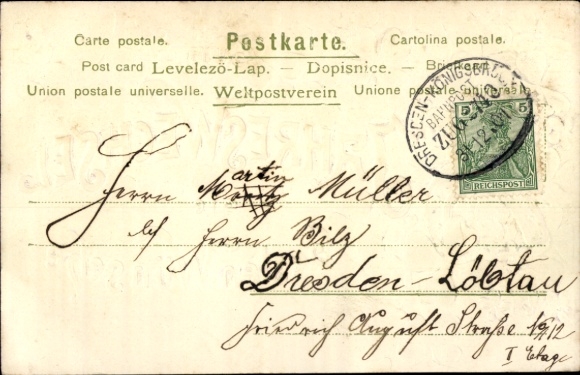 Carte postale. Postkarte. Cartolina postale.
Post card — Levelező-Lap. — Dopisnice. —
Union postale universelle. Weltpostverein Unione postale universale
DRESDEN-KÖNIGSBRÜCK
BAHNPOST
ZUG
31.12.01
5 5
REICHSPOST
Herrn Martin Müller
bei Herrn Bilz
Dresden-Löbtau
Friedrich August Straße 10/12
I Etage